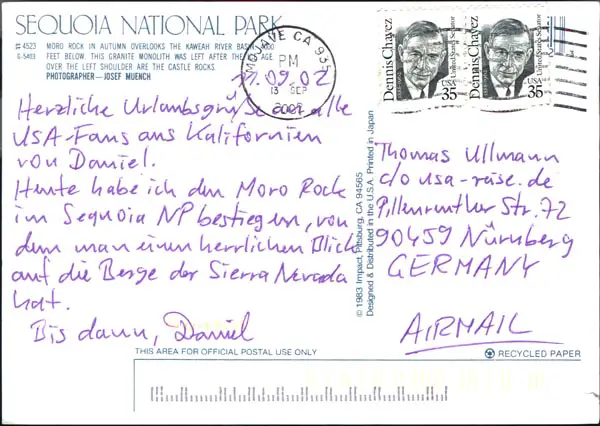 SEQUOIA NATIONAL PARK
# 4523 MORO ROCK IN AUTUMN OVERLOOKS THE KAWEAH RIVER BASIN
S-5403 FEET BELOW. THIS GRANITE MONOLITH WAS LEFT AFTER THE
OVER THE LEFT SHOULDER ARE THE CASTLE ROCKS.
PHOTOGRAPHER—JOSEF MUENCH
MOJAVE CA 935
PM
13 SEP
2002
.09.02
Herzliche Urlaubsgrüße an alle
USA-Fans aus Kalifornien
von Daniel.
Heute habe ich den Moro Rock
im Sequoia NP bestiegen, von
dem man einen herrlichen Blick
auf die Berge der Sierra Nevada
hat.
Bis dann, Daniel
Dennis Chavez
United States Senator
USA
35
Dennis Chavez
United States Senator
USA
35
© 1983 Impact, Pittsburg, CA 94565
Designed & Distributed in the U.S.A. Printed in Japan
Thomas Ullmann
c/o usa-reise.de
Pillenreuther Str. 72
90459 Nürnberg
GERMANY
AIRMAIL
THIS AREA FOR OFFICIAL POSTAL USE ONLY
RECYCLED PAPER